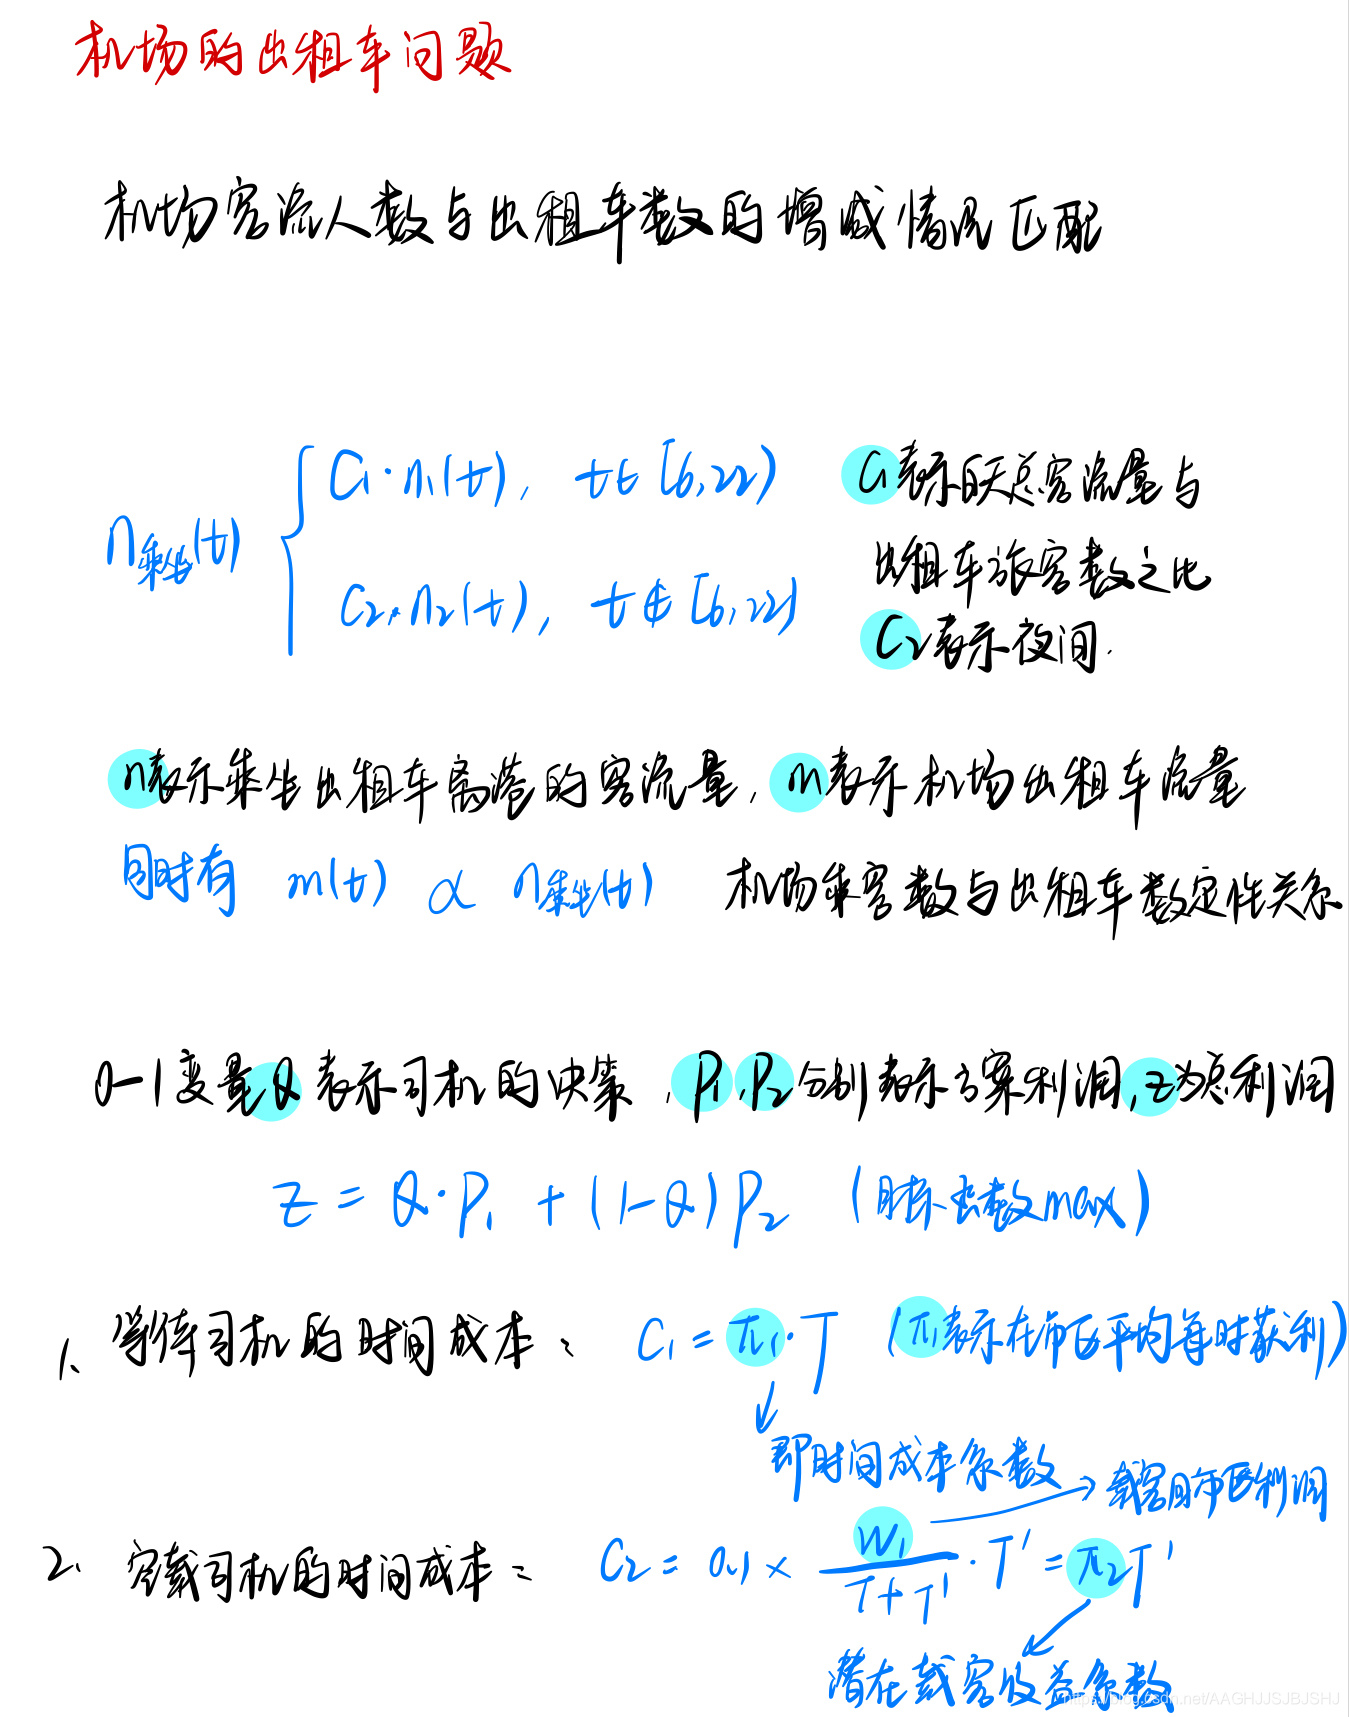 机场的出租车问题
机场客流人数与出租车数的增减情况匹配
n乘坐(t) { C₁·n₁(t), t∈[6,22)
C₂·n₂(t), t∉[6,22)
C₁表示白天总客流量与
出租车旅客数之比
C₂表示夜间.
n表示乘坐出租车离港的客流量, m表示机场出租车流量
同时有 m(t) ∝ n乘坐(t) 机场乘客数与出租车数定性关系
0-1变量Q表示司机的决策, P₁,P₂分别表示方案利润,z为总利润
z = Q·P₁ + (1-Q)P₂ (目标函数max)
1、等待司机的时间成本: C₁ = π₁·T (π₁表示在市区平均每时获利)
即时间成本系数
载客时市区利润
2、空载司机的时间成本: C₂ = 0.1 × W₁/(T+T')·T' = π₂T'
潜在载客收益系数
https://blog.csdn.net/AAGHJJSJBJSHJ